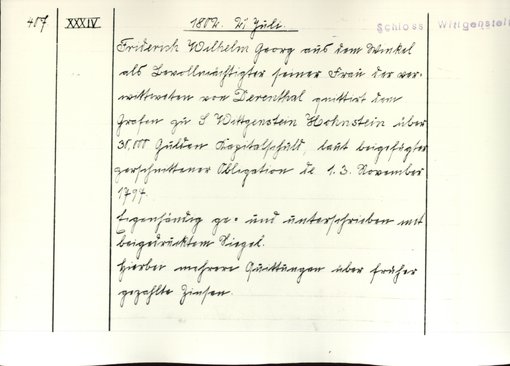 407 XXXIV 1802. 2. Juli. Schloss Wittgenstein
Friderich Wilhelm Georg aus dem Winkel
als Bevollmächtigter seiner Frau der ver-
wittweten von Derenthal quittirt dem
Grafen zu S Wittgenstein Hohnstein über
30,000 Gulden Kapitalschuld, laut beigefügter
zerschnittener Obligation de 1. 3. November
1797.
Eigenhändig ge- und unterschrieben mit
beigedrucktem Siegel.
Hierbei mehrere Quittungen über früher
gezahlte Zinsen.